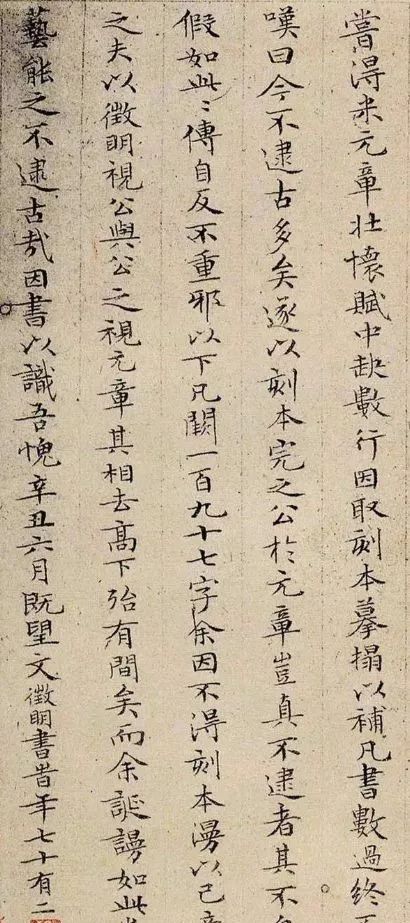 嘗得米元章壮懷賦中缺數行因取刻本摹搨以補凡書數過終不
嘆曰今不逮古多矣遂以刻本完之公於元章豈真不逮者其不自
假如此〻傳自反不重邪以下凡闕一百九十七字余因不得刻本漫以己意
之夫以徵明視公與公之視元章其相去髙下殆有間矣而余誕謾如此
藝能之不逮古㢤因書以識吾愧辛丑六月既望文徵明書旹年七十有二